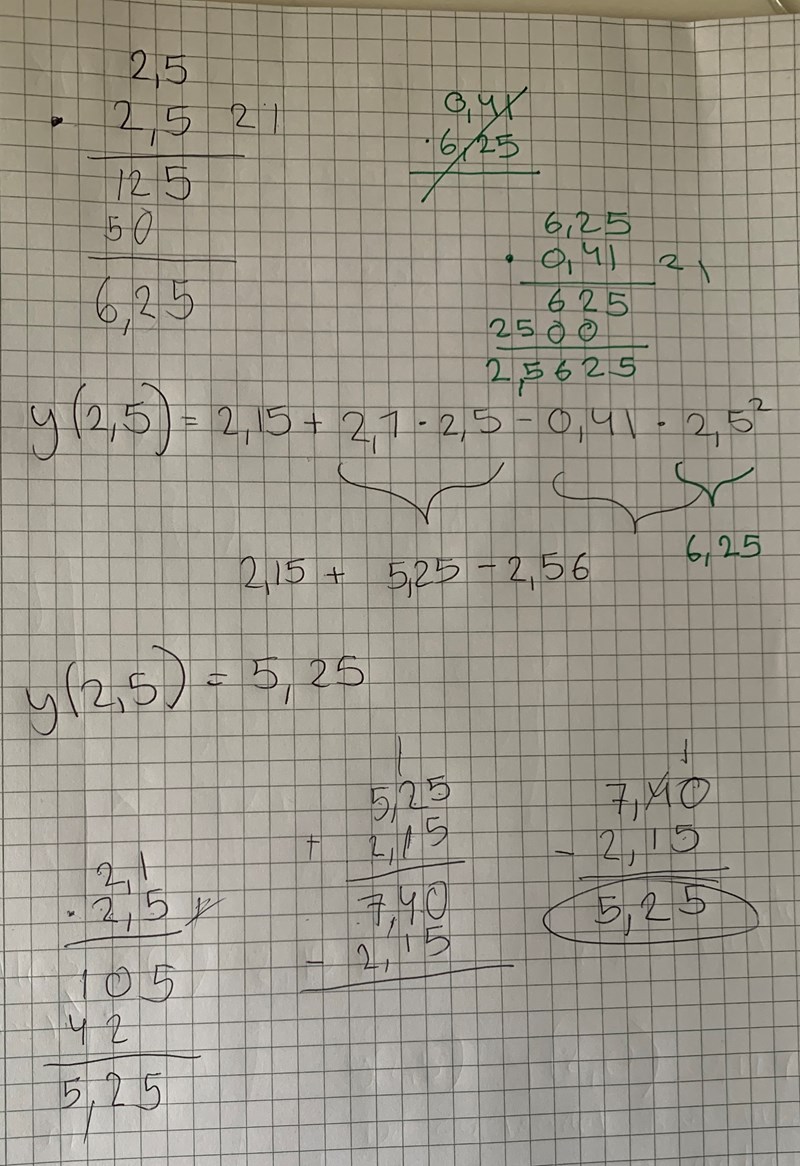 2,5
· 2,5 21
125
50
6,25
0,41
· 6,25
6,25
· 0,41 21
625
2500
2,5625
y(2,5) = 2,15 + 2,1 · 2,5 - 0,41 · 2,5²
6,25
2,15 + 5,25 - 2,56
y(2,5) = 5,25
2,1
· 2,5
105
42
5,25
1
5,25
+ 2,15
7,40
- 2,15
1
7,40
- 2,15
5,25